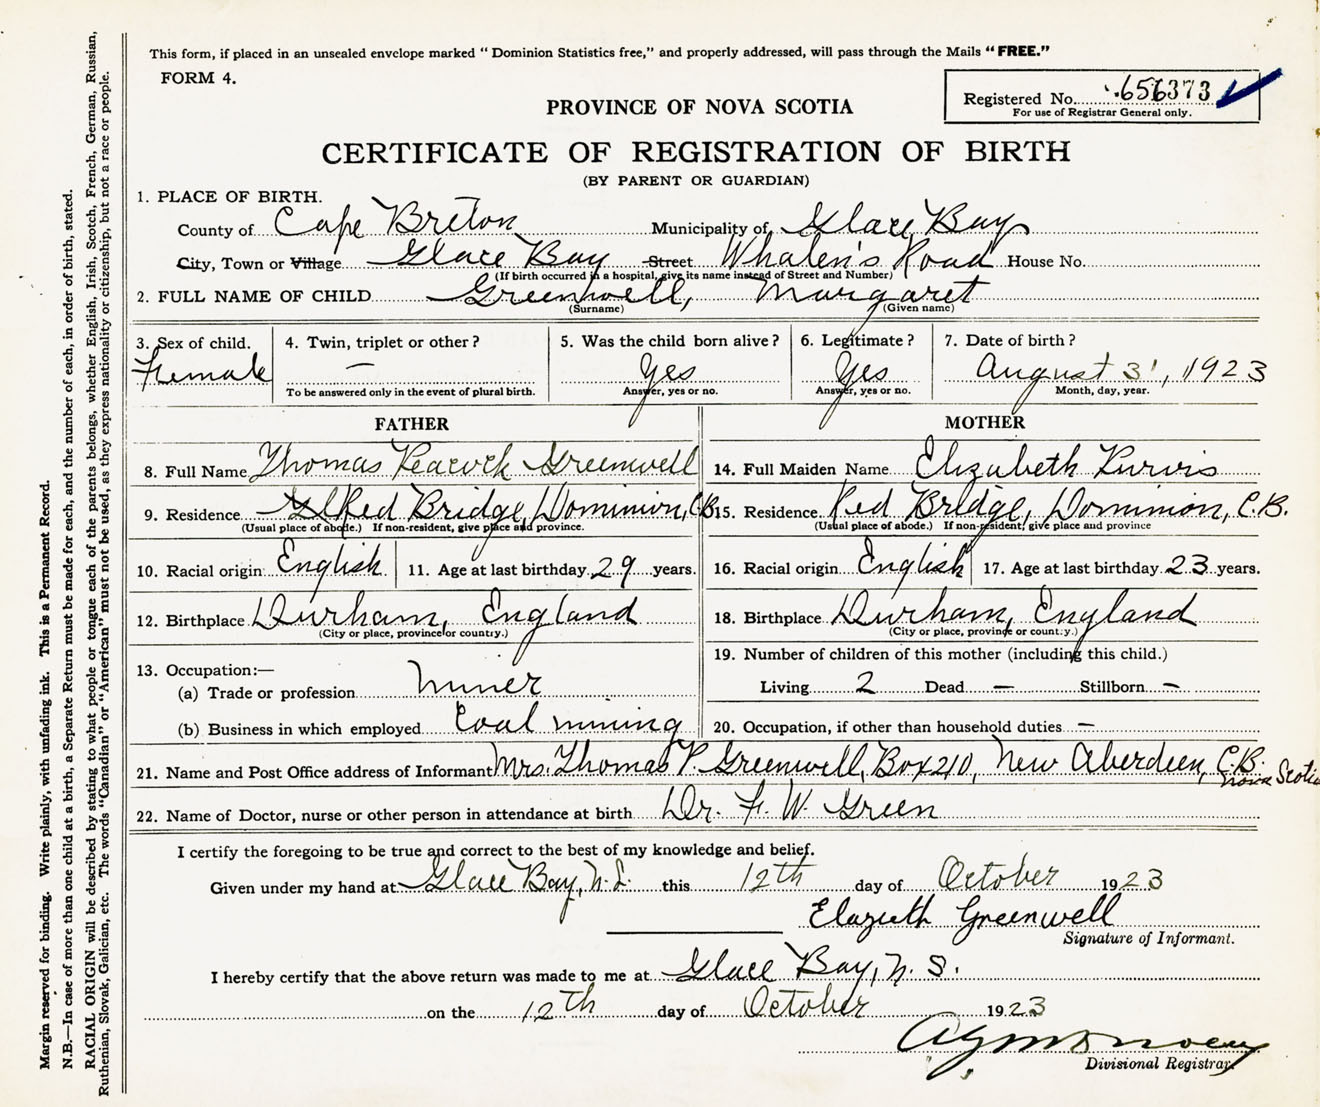 This form, if placed in an unsealed envelope marked "Dominion Statistics free," and properly addressed, will pass through the Mails "FREE."
FORM 4.
Registered No. 656373
For use of Registrar General only.
PROVINCE OF NOVA SCOTIA
CERTIFICATE OF REGISTRATION OF BIRTH
(BY PARENT OR GUARDIAN)
1. PLACE OF BIRTH.
County of Cape Breton Municipality of Glace Bay
City, Town or Village Glace Bay Street Whalen's Road House No.
(If birth occurred in a hospital, give its name instead of Street and Number)
2. FULL NAME OF CHILD Greenwell, Margaret
(Surname) (Given name)
3. Sex of child. 4. Twin, triplet or other? 5. Was the child born alive? 6. Legitimate? 7. Date of birth?
Female — Yes Yes August 31, 1923
To be answered only in the event of plural birth. Answer, yes or no. Answer, yes or no. Month, day, year.
FATHER MOTHER
8. Full Name Thomas Peacock Greenwell 14. Full Maiden Name Elizabeth Purvis
9. Residence Red Bridge, Dominion, C.B. 15. Residence Red Bridge, Dominion, C.B.
(Usual place of abode.) If non-resident, give place and province. (Usual place of abode.) If non-resident, give place and province
10. Racial origin English 11. Age at last birthday 29 years. 16. Racial origin English 17. Age at last birthday 23 years.
12. Birthplace Durham, England 18. Birthplace Durham, England
(City or place, province or country.) (City or place, province or country.)
13. Occupation:— 19. Number of children of this mother (including this child.)
(a) Trade or profession Miner Living 2 Dead — Stillborn —
(b) Business in which employed Coal mining 20. Occupation, if other than household duties —
21. Name and Post Office address of Informant Mrs. Thomas P. Greenwell, Box 210, New Aberdeen, C.B.
Nova Scotia
22. Name of Doctor, nurse or other person in attendance at birth Dr. F. W. Green
I certify the foregoing to be true and correct to the best of my knowledge and belief.
Given under my hand at Glace Bay, N.S. this 12th day of October 1923
Greenwell
Signature of Informant.
I hereby certify that the above return was made to me at Glace Bay, N. S.
on the 12th day of October 1923
Divisional Registrar.
Margin reserved for binding. Write plainly, with unfading ink. This is a Permanent Record.
N.B.—In case of more than one child at a birth, a Separate Return must be made for each, and the number of each, in order of birth, stated.
RACIAL ORIGIN will be described by stating to what people or tongue each of the parents belongs, whether English, Irish, Scotch, French, German, Russian,
Ruthenian, Slovak, Galician, etc. The words "Canadian" or "American" must not be used, as they express nationality or citizenship, but not a race or people.